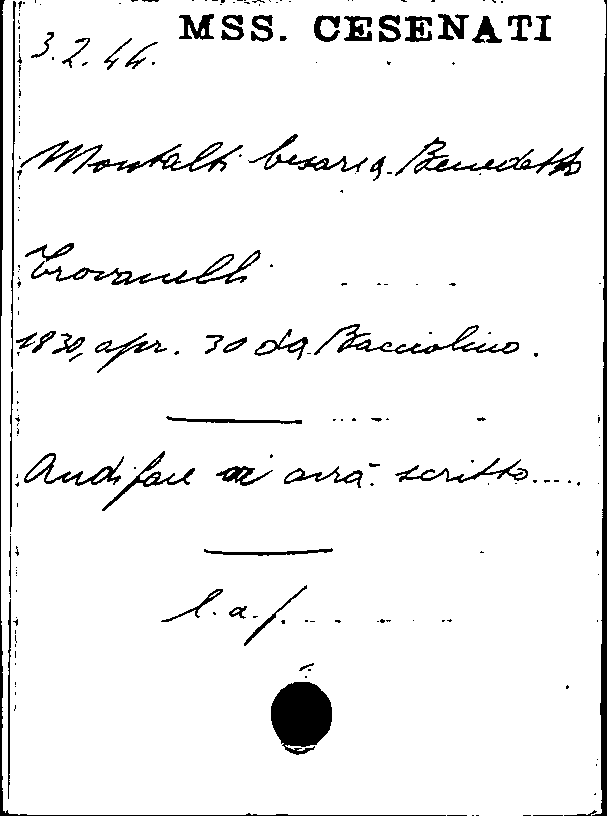 MSS. CESENATI
3.2.44.
Montalti Cesare a Benedetto
Trovanelli
1830, apr. 30 da Bacciolino.
Audiface vi avrà scritto.....
l. a. f.